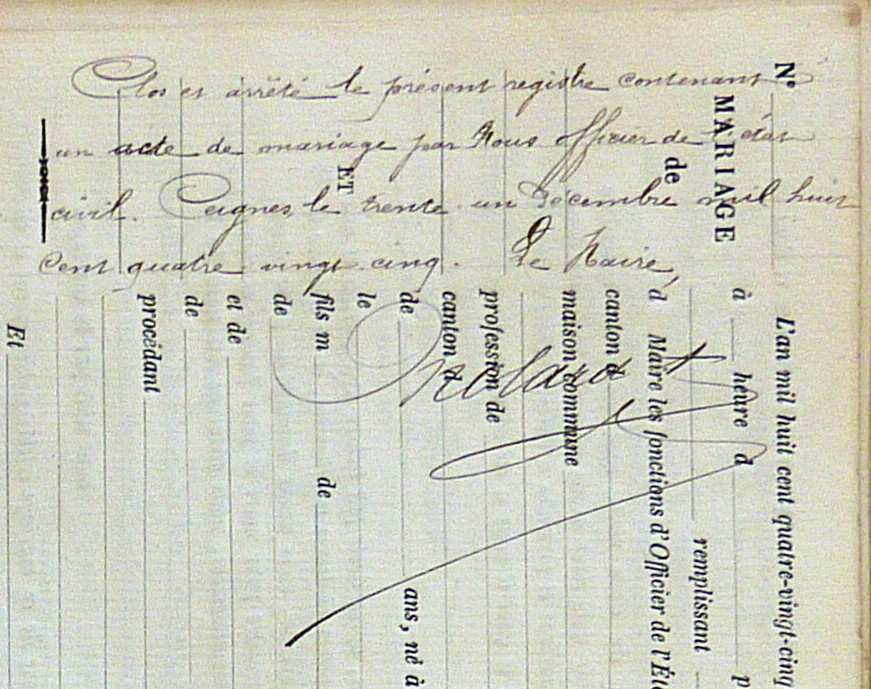 Clos et arrêté le présent registre contenant
un acte de mariage par Nous officier de l'état
civil. Ceignes, le trente un Décembre mil huit
Cent quatre vingt cinq. Le Maire,
N°
MARIAGE
de
ET
L'an mil huit cent quatre-vingt-cinq
à heure d
remplissant
d Maire les fonctions d'Officier de l'Éta
canton d
maison commune
profession de
canton d
de ans, né à
le
fils m de
de
et de
de
procédant
Et